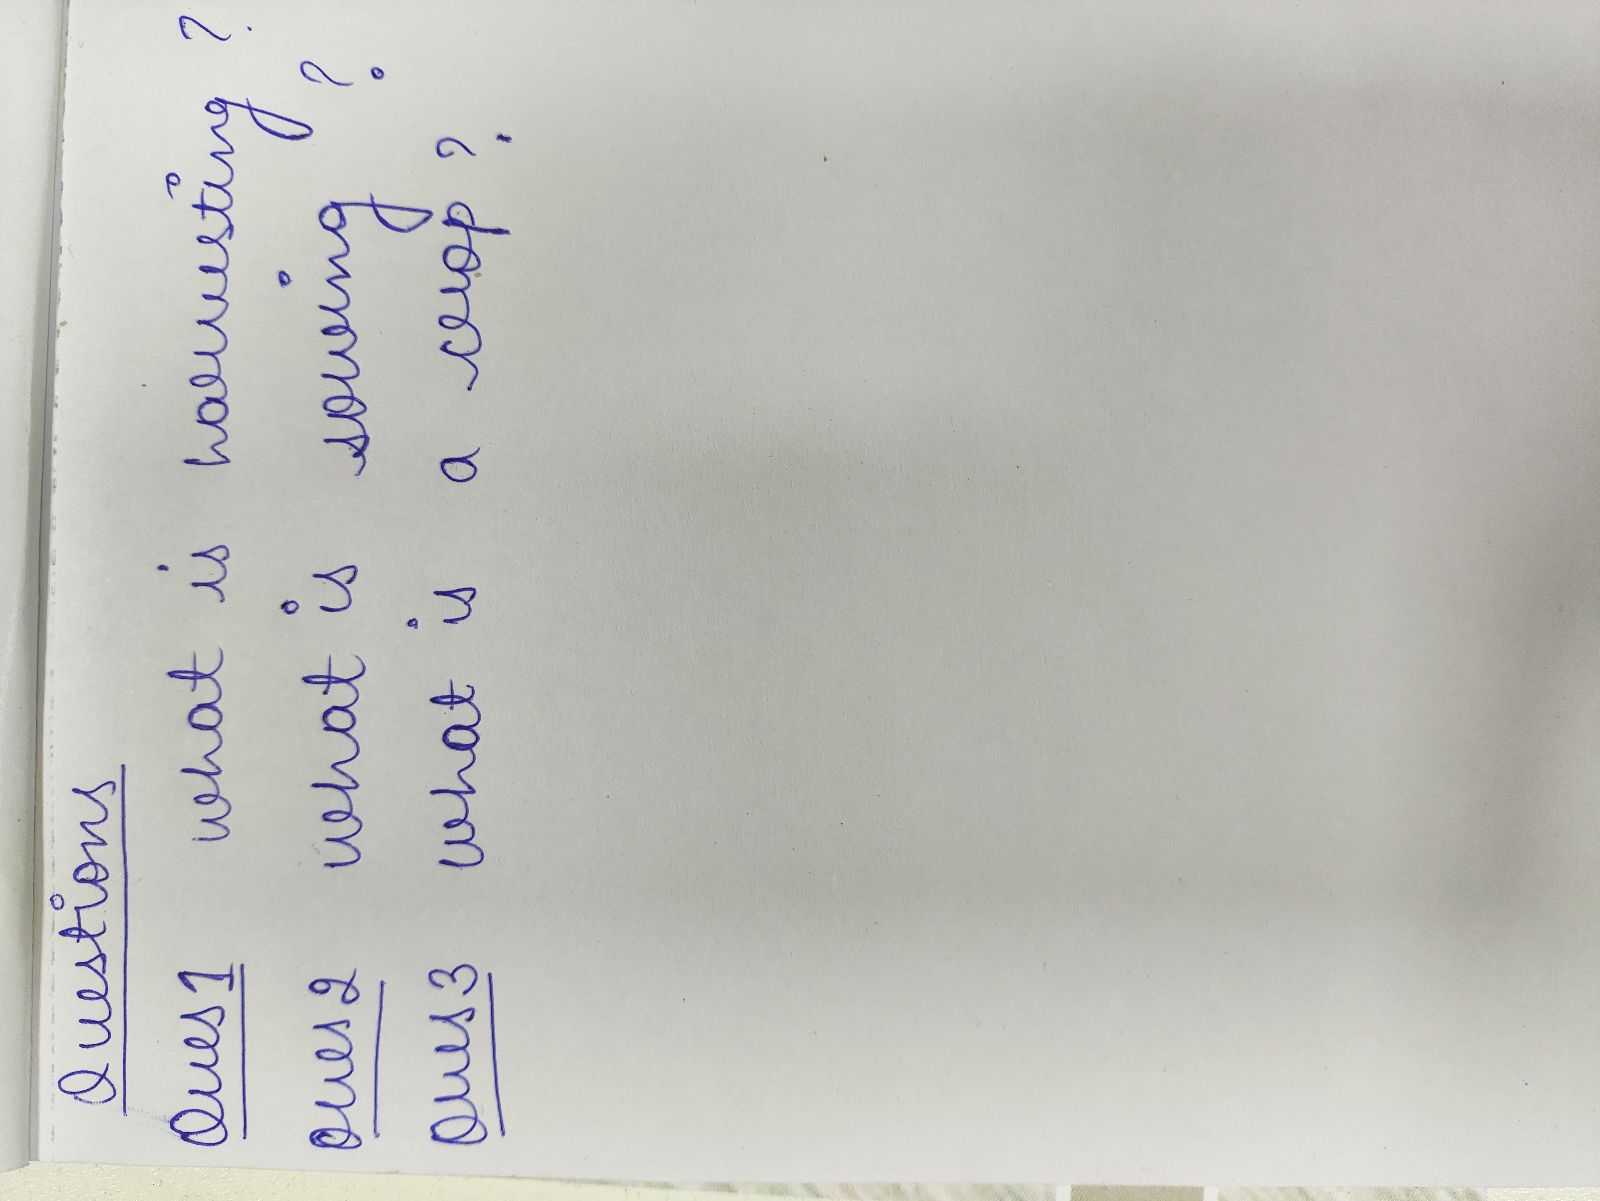 Questions
Ques1 what is harvesting ?
Ques2 what is sowing ?
Ques3 what is a crop ?